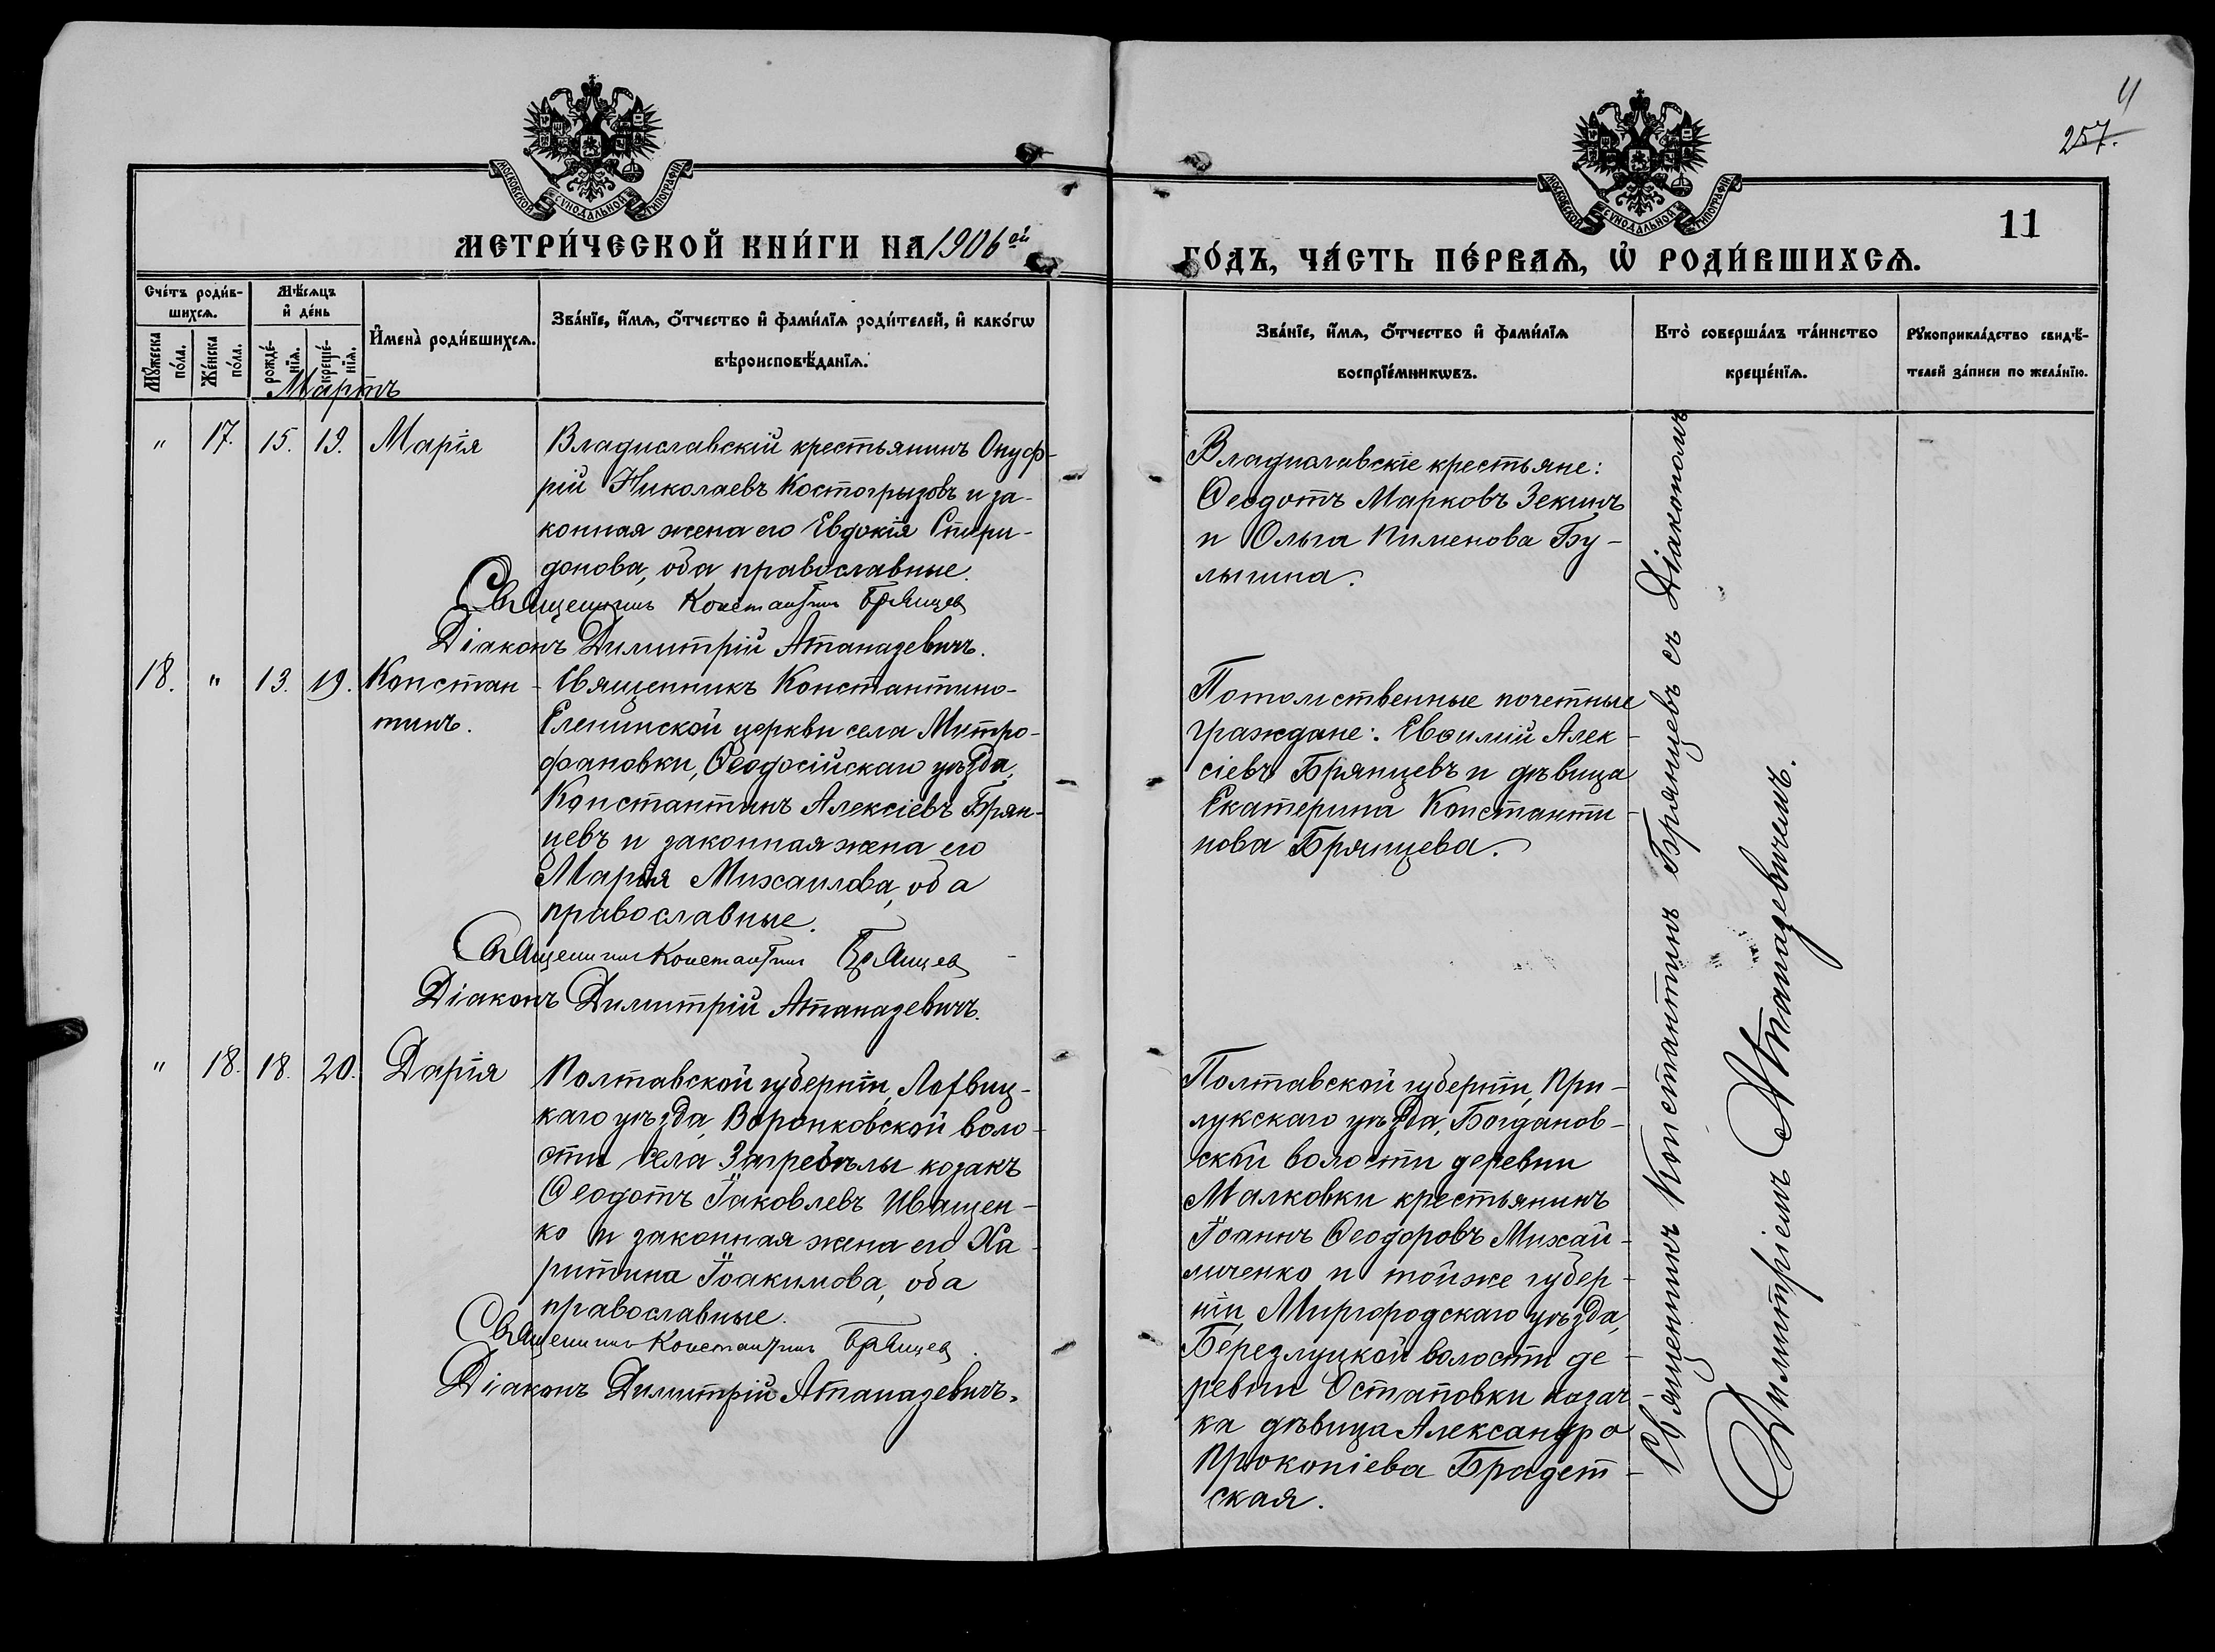 11
257.
МОСКОВСКОЙ СѴНОДАЛЬНОЙ ТИПОГРАФІИ
МОСКОВСКОЙ СѴНОДАЛЬНОЙ ТИПОГРАФІИ
11
МЕТРИ́ЧЕСКОЙ КНИ́ГИ НА 1906 ой
ГО́ДЪ, ЧА́СТЬ ПЕ́РВАѦ, Ѡ҆ РОДИ́ВШИХСѦ.
Сче́тъ роди́в-
шихсѧ.
Мꙋ́жеска
по́ла.
Же́нска
по́ла.
Мѣ́сѧцъ
и҆ де́нь
рожде́-
нїѧ.
креще́-
нїѧ.
И҆мена̀ роди́вшихсѧ.
Зва́нїе, и҆́мѧ, ѻ҆́тчество и҆ фами́лїѧ роди́телей, и҆ како́гѡ
вѣроисповѣ́данїѧ.
Зва́нїе, и҆́мѧ, ѻ҆́тчество и҆ фами́лїѧ
воспрїе́мникѡвъ.
Кто̀ соверша́лъ та́инство
креще́нїѧ.
Рꙋкоприкла́дство свидѣ́-
телей за́писи по жела́нїю.
Мартъ
" 17. 15. 19. Марія
Владиславскій крестьянинъ Онуф-
рій Николаевъ Костогрызовъ и за-
конная жена его Евдокія Спири-
донова, оба православные.
Священникъ Константинъ Брянцев
Діаконъ Димитрій Атаназевичъ.
Владиславскіе крестьяне:
Ѳеодотъ Марковъ Зекинъ
и Ольга Пименова Бу-
лыгина.
18. " 13. 19. Констан-
тинъ.
Священникъ Константино-
Еленинской церкви села Митро-
фановки, Ѳеодосійскаго уѣзда,
Константинъ Алексіевъ Брян-
цевъ и законная жена его
Марія Михаилова, оба
православные.
Священникъ Константинъ Брянцев
Діаконъ Димитрій Атаназевичъ.
Потомственные почетные
граждане: Евѳимій Алек-
сіевъ Брянцевъ и дѣвица
Екатерина Константи-
нова Брянцева.
" 18. 18. 20. Дарія
Полтавской губерніи, Лохвиц-
каго уѣзда, Воронковской воло-
сти села Загребѣлы козакъ
Ѳеодотъ Іаковлевъ Иващен-
ко и законная жена его Ха-
ритина Іоакимова, оба
православные.
Священникъ Константинъ Брянцев.
Діаконъ Димитрій Атаназевичъ.
Полтавской губерніи, При-
лукскаго уѣзда, Богданов-
ской волости деревни
Малковки крестьянинъ
Іоаннъ Ѳеодоровъ Михай-
личенко и той же губер-
ніи, Миргородскаго уѣзда,
Березлуцкой волости де-
ревни Остаповки казач-
ка дѣвица Александра
Прокопіева Брадет-
ская.
Священникъ Константинъ Брянцевъ съ Діакономъ
Димитріемъ Атаназевичемъ.